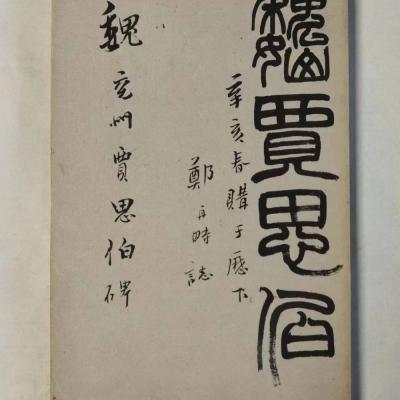 魏賈思伯
辛亥春購于歷下
鄭再時誌
魏兗州賈思伯碑